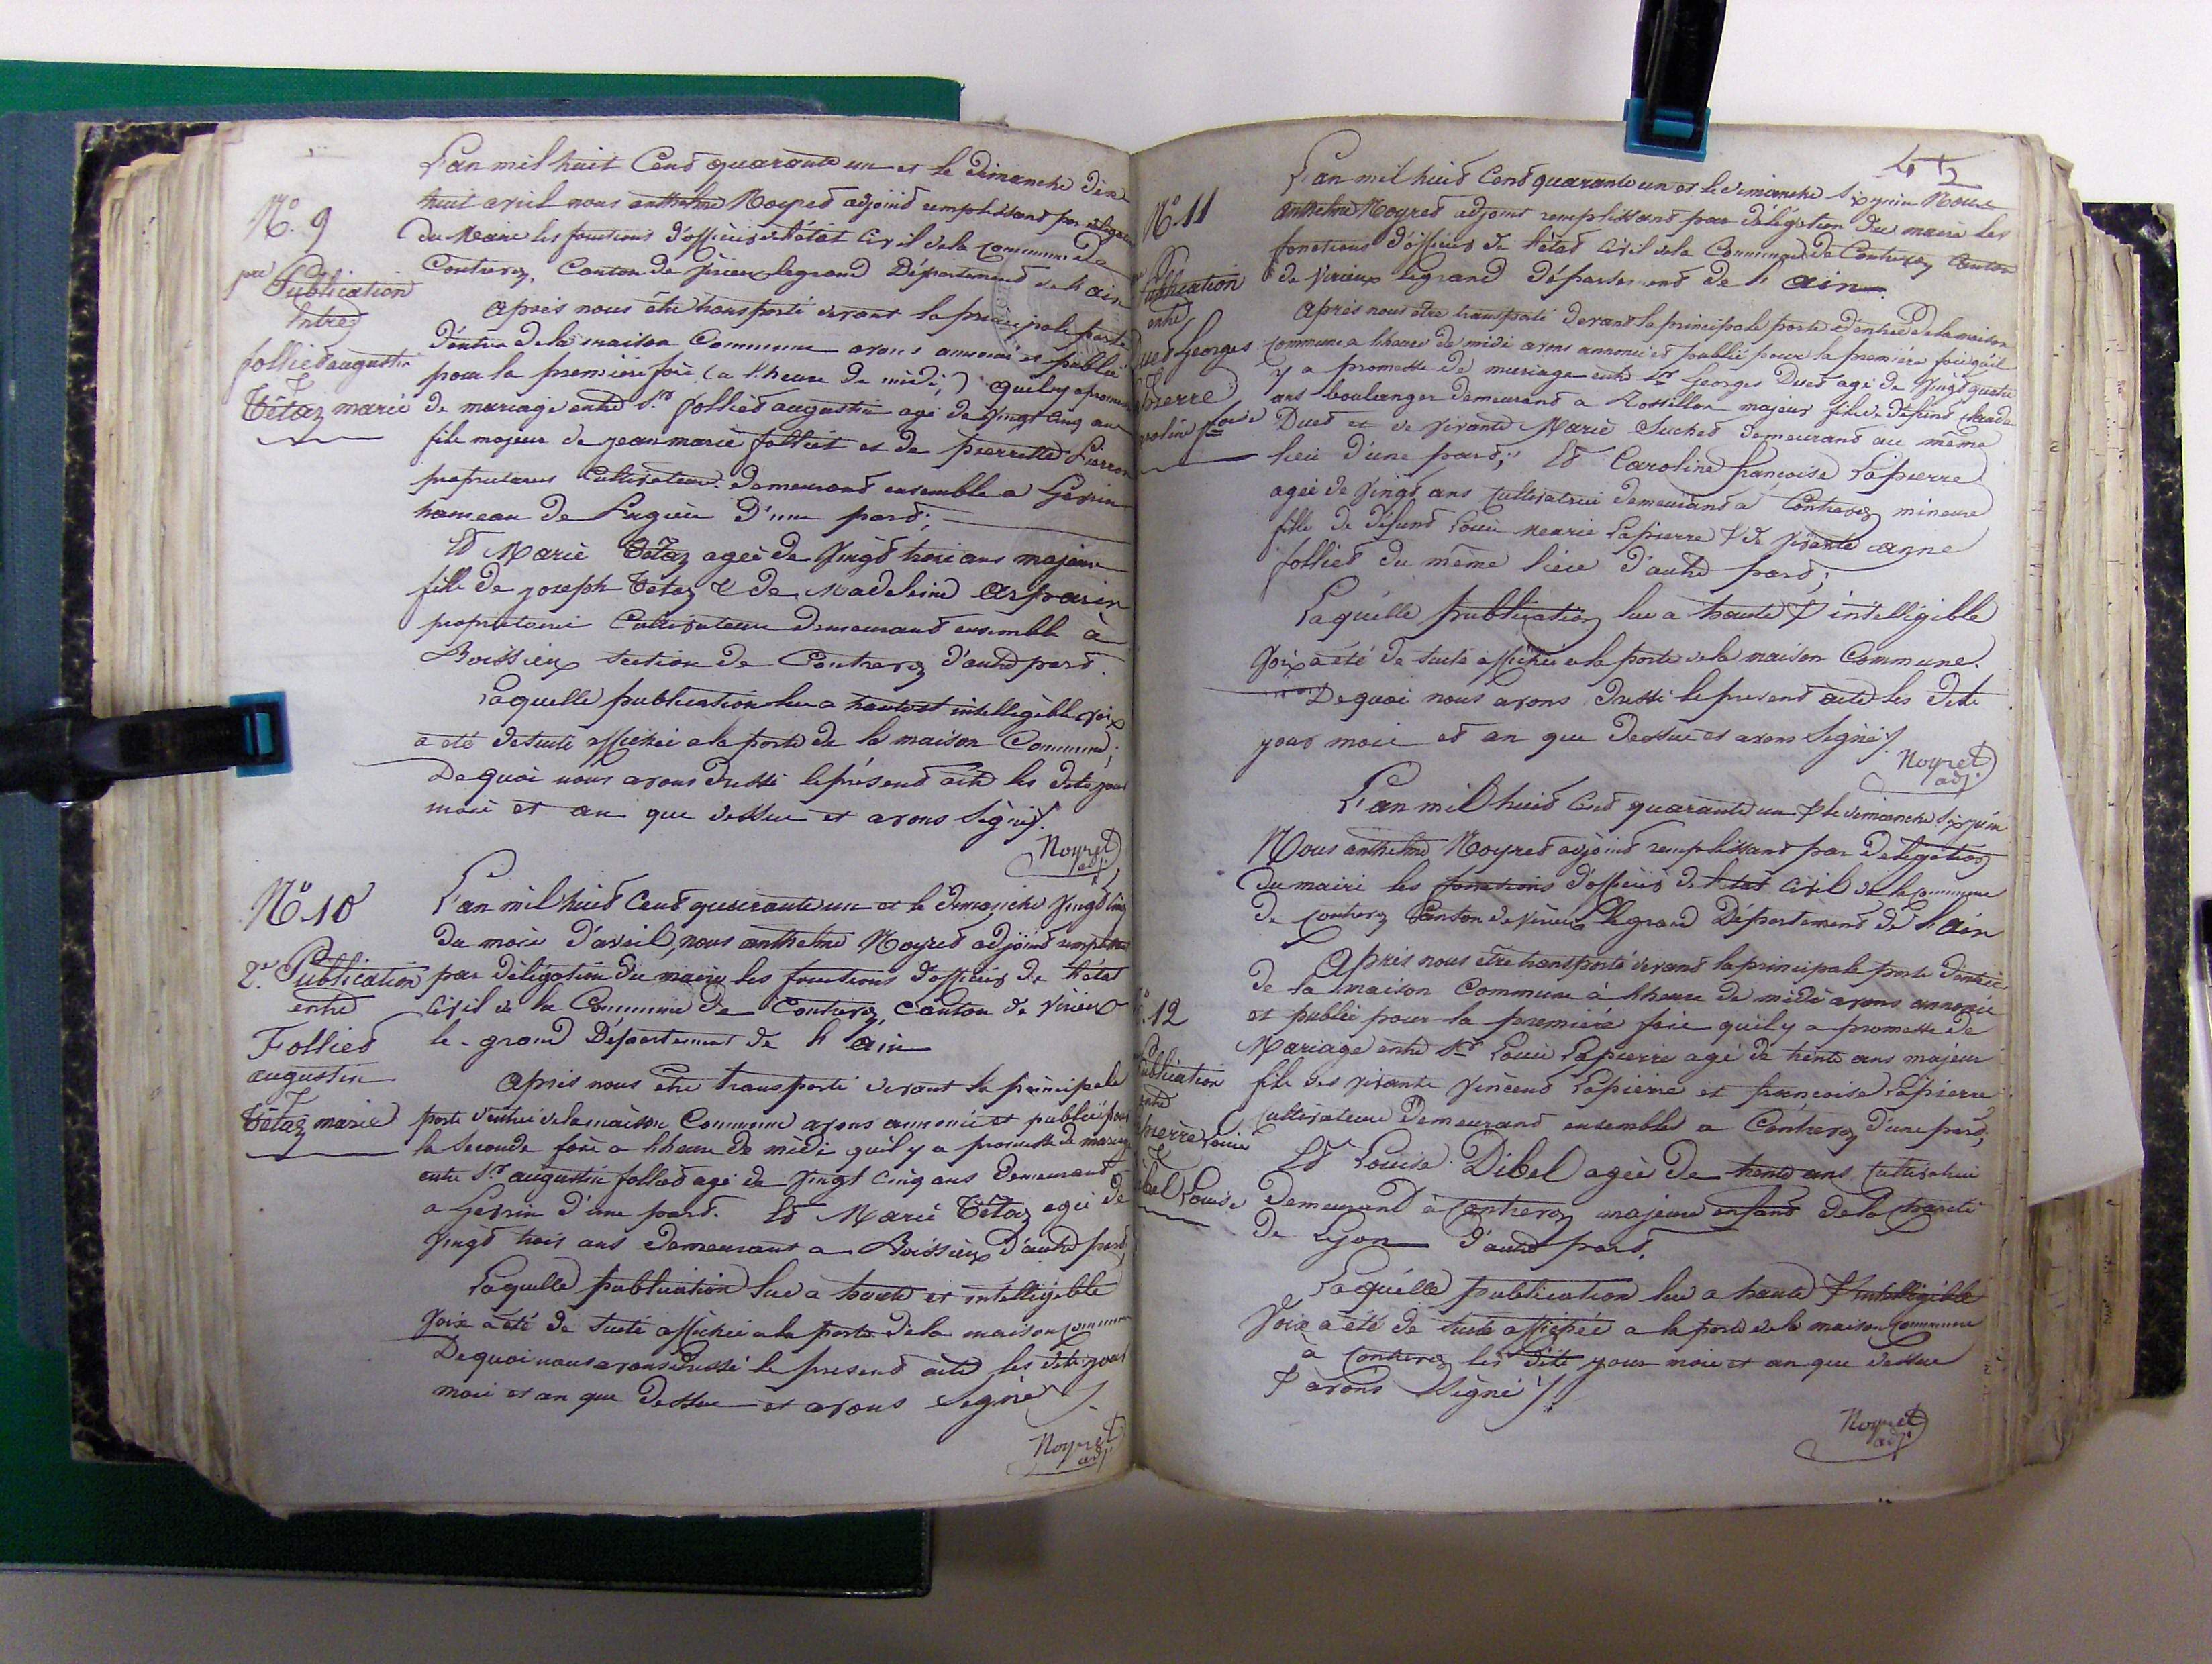 L'an mil huit Cent quarante un et le dimanche dix
huit avril nous anthelme Noyret adjoint remplissant par délégation
du Maire les fonctions d'officier de l'état Civil de la Commune de
Contrevoz, Canton de Virieu legrand Département de l'ain
N° 9
pre Publication
Entre
folliet augustin
&
Tétaz marie
après nous être transporté devant la principale porte
d'entrée de la maison Commune avons annoncé et publié
pour la première fois (a l'heure de midi,) quil y a promesse
de mariage entre Sr. folliet augustin agé de Vingt Cinq ans
fils majeur de jean marie folliet et de pierrette Pierron
proprietaires Cultivateurs demeurant ensemble a Gevrin
hameau de d'une part;
Et Marie Tétaz agée de Vingt trois ans majeure
fille de joseph Tetaz & de Madeleine
proprietaires Cultivateurs demeurant ensemble à
Boissieux section de Contrevoz d'autre part.
Laquelle publication lue a haute et intelligible voix
a été de suite affichée a la porte de la maison Commune;
De quoi nous avons dressé le présent acte les dits jour
mois et an que dessus et avons signé/.
Noyret
adj.
N° 10
2e. Publication
entre
Folliet
augustin
&
Tétaz marie
L'an mil huit Cent quarante un et le dimanche Vingt Cinq
du mois d'avril, nous anthelme Noyret adjoint remplissant
par délégation du maire les fonctions d'officier de l'état
Civil de la Commune de Contrevoz, Canton de Virieu
le-grand Département de l'ain
Après nous être transporté devant la principale
porte d'entrée de la maison Commune avons annoncé et publié pour
la seconde fois a l'heure de midi quil y a promesse de mariage
entre Sr. augustin folliet agé de Vingt Cinq ans demeurant
a Gevrin d'une part. Et Marie Tétaz agée de
Vingt trois ans demeurant a Boissieux d'autre part,
Laquelle publication lue a haute et intelligible
Voix a été de suite affichée a la porte de la maison Commune
De quoi nous avons dressé le present acte les dits jour
mois et an que dessus et avons signé/.
Noyret
adj.
L'an mil huit Cent quarante un et le dimanche six juin Nous
anthelme Noyret adjoint remplissant par délégation du maire les
fonctions d'officier de l'état Civil de la Commune de Contrevoz Canton
de Virieux legrand département de l'ain
N° 11
Publication
entre
Duet Georges
&
pierre
Après nous etre transporté devant la principale porte d'entrée de la maison
commune a l'heure de midi avons annoncé et publié pour la première fois qu'il
y a promesse de mariage entre Sr Georges Duet agé de Vingt quatre
ans boulanger demeurant a Rossillon majeur fils de défunt Claude
Duet et de vivante Marie Suchet demeurant au même
lieu d'une part; Et Caroline françoise Lapierre
agée de Vingt ans Cultivatrice demeurant a Contrevoz mineure
fille de défunt Louis Marie Lapierre & de vivante anne
folliet du même lieu d'autre part;
Laquélle publication lue a haute & intelligible
Voix a été de suite affichée a la porte de la maison Commune.
De quoi nous avons dressé le present acte les dits
jour mois et an que dessus et avons signé/.
Noyret
adj.
L'an mil huit Cent quarante un & le dimanche six juin
Nous anthelme Noyret adjoint remplissant par delegation
du maire les fonctions d'officier de l'état civil de la Commune
de Contrevoz Canton de Virieux legrand Département de l'ain
.12
Publication
entre
Louis
&
Dibel Louise
Après nous être transporté devant la principale porte d'entrée
de la maison Commune à l'heure de midi avons annoncé
et publié pour la première fois quil y a promesse de
Mariage entre Sr Louis Lapierre agé de trente ans majeur
fils des vivants Vincent Lapierre et françoise Lapierre
Cultivateurs demeurant ensembles a Contrevoz d'une part;
Et Louise Dibel agée de trente ans Cultivatrice
demeurant à Contrevoz majeure enfant de la charité
de Lyon d'autre part.
Laquélle publication lue a haute & intelligible
Voix a été de suite affichée a la porte de la maison Commune
à Contrevoz les dits jour mois et an que dessus
& avons signé/.
Noyret
adj.